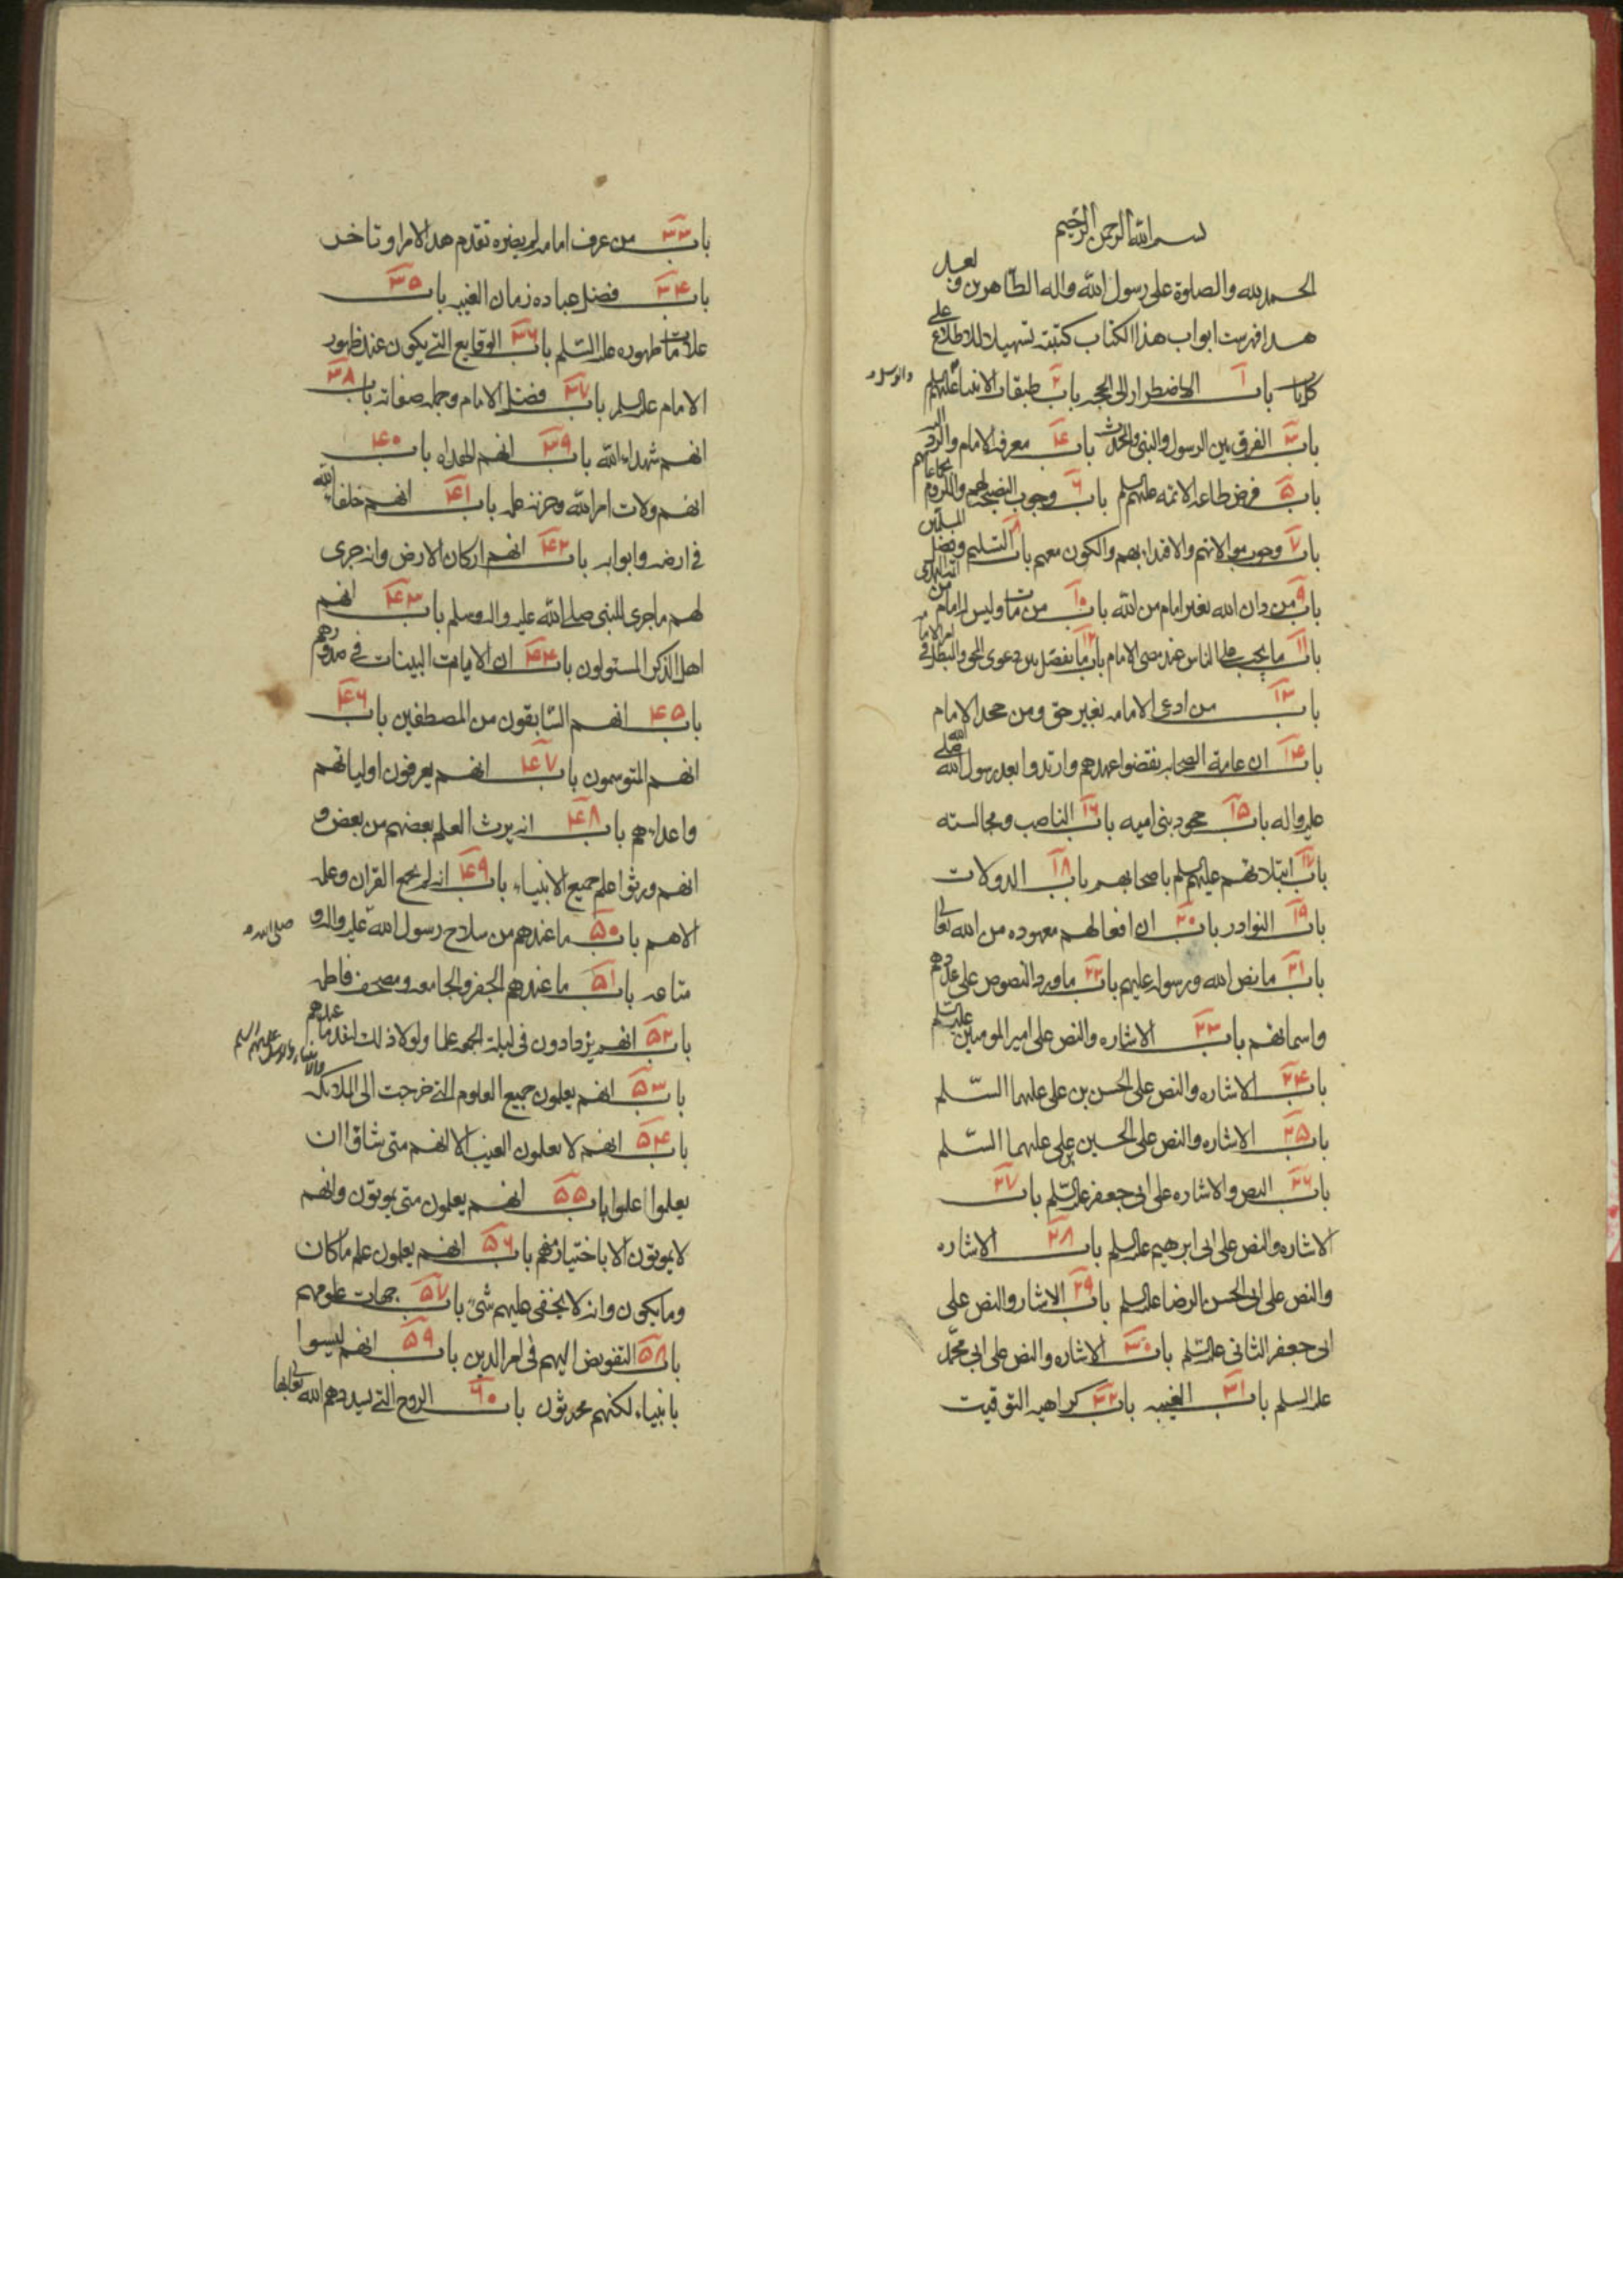 بسم الله الرحمن الرحيم
الحمد لله والصلوة على رسول الله واله الطاهرين وبعد
هذا فهرست ابواب هذا الكتاب كتبته تسهيلا للاطلاع على
باب ١ الاضطرار الى الحجه باب ٢ طبقات الانبياء عليهم
والرسل
باب ٣ الفرق بين الرسول والنبي والمحدث باب ٤ معرفه الامام والرد اليه
باب ٥ فرض طاعه الائمه عليهم السلم باب ٦ وجوب النصيحه لهم واللزوم لجماعتهم
باب ٧ وجوب موالاتهم والاقتداء بهم والكون معهم باب ٨ التسليم وفضل المسلمين
باب ٩ من دان الله بغير امام من الله باب ١٠ من مات وليس له امام من ائمه الهدى
باب ١١ ما يجب على الناس عند مضى الامام باب ١٢ ما يفصل بين دعوى المحق والمبطل في امر الامامه
باب ١٣ من ادعى الامامه بغير حق ومن جحد الامام
باب ١٤ ان عامة الصحابه نقضوا عهدهم وارتدوا بعد رسول الله صلى الله
عليه واله باب ١٥ جحود بنى اميه باب ١٦ الناصب ومجالسته
باب ١٧ ابتلائهم عليهم السلم باصحابهم باب ١٨ الدولات
باب ١٩ النوادر باب ٢٠ ان افعالهم معهوده من الله تعالى
باب ٢١ ما نص الله ورسوله عليهم باب ٢٢ ما ورد النصوص على عددهم
واسمائهم باب ٢٣ الاشاره والنص على امير المومنين عليه السلم
باب ٢٤ الاشاره والنص على الحسن بن على عليهما السلم
باب ٢٥ الاشاره والنص على الحسين بن على عليهما السلم
باب ٢٦ النص والاشاره على ابى جعفر عليه السلم باب ٢٧
الاشاره والنص على ابى ابرهيم عليه السلم باب ٢٨ الاشاره
والنص على ابى الحسن الرضا عليه السلم باب ٢٩ الاشاره والنص على
ابى جعفر الثانى عليه السلم باب ٣٠ الاشاره والنص على ابى محمد
عليه السلم باب ٣١ الغيبه باب ٣٢ كراهيه التوقيت
باب ٣٣ من عرف امامه لم يضره تقدم هذا الامر او تاخر
باب ٣٤ فضل عباده زمان الغيبه باب ٣٥
علامات ظهوره عليه السلم باب ٣٦ الوقايع التى يكون عند ظهور
الامام عليه السلم باب ٣٧ فضل الامام وجمله صفاته باب ٣٨
انهم شهداء الله باب ٣٩ انهم الهداه باب ٤٠
انهم ولات امر الله وخزنه علمه باب ٤١ انهم خلفاء الله
فى ارضه وابوابه باب ٤٢ انهم اركان الارض وانه جرى
لهم ما جرى للنبى صلى الله عليه واله وسلم باب ٤٣ انهم
اهل الذكر المسئولون باب ٤٤ ان الايات البينات فى صدورهم
باب ٤٥ انهم السابقون من المصطفين باب ٤٦
انهم المتوسمون باب ٤٧ انهم يعرفون اوليائهم
واعدائهم باب ٤٨ انه يرث العلم بعضهم من بعض و
انهم ورثوا علم جميع الانبياء باب ٤٩ انه لم يجمع القران وعلمه
الاهم باب ٥٠ ما عندهم من سلاح رسول الله عليه واله و
متاعه باب ٥١ ما عندهم الجفر والجامعه ومصحف فاطمه
باب ٥٢ انهم يزدادون فى ليلة الجمعه علما ولولا ذلك لنفد ما عندهم
باب ٥٣ انهم يعلمون جميع العلوم التى خرجت الى الملائكه
والانبياء والرسل عليهم السلم
باب ٥٤ انهم لا يعلمون الغيب الا انهم متى شاؤا ان
يعلموا اعلموا باب ٥٥ انهم يعلمون متى يموتون وانهم
لا يموتون الا باختيار منهم باب ٥٦ انهم يعلمون علم ما كان
وما يكون وانه لا يخفى عليهم شئ باب ٥٧ جهات علومهم
باب ٥٨ التفويض اليهم فى امر الدين باب ٥٩ انهم ليسوا
بانبياء لكنهم محدثون باب ٦٠ الروح التى يسددهم الله تعالى بها